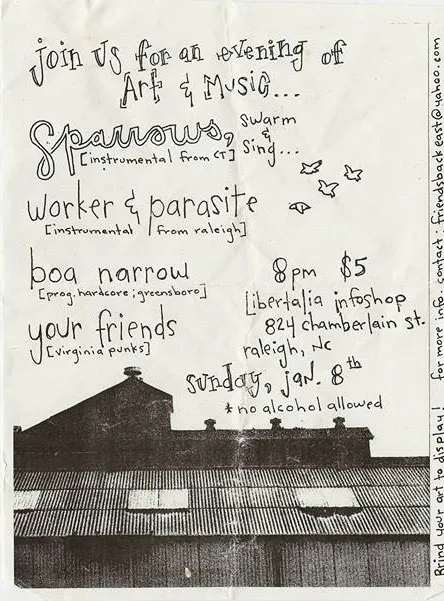 join us for an evening of
Art & Music...
Sparrows, Swarm
&
Sing...
[instrumental from CT]
worker & parasite
[instrumental from raleigh]
boa narrow
[prog. hardcore; greensboro]
your friends
[virginia punks]
8pm $5
Libertalia infoshop
824 chamberlain st.
raleigh, NC
sunday, jan. 8th
*no alcohol allowed
Bring your art to display! for more info. contact: friendsbackeast@yahoo.com